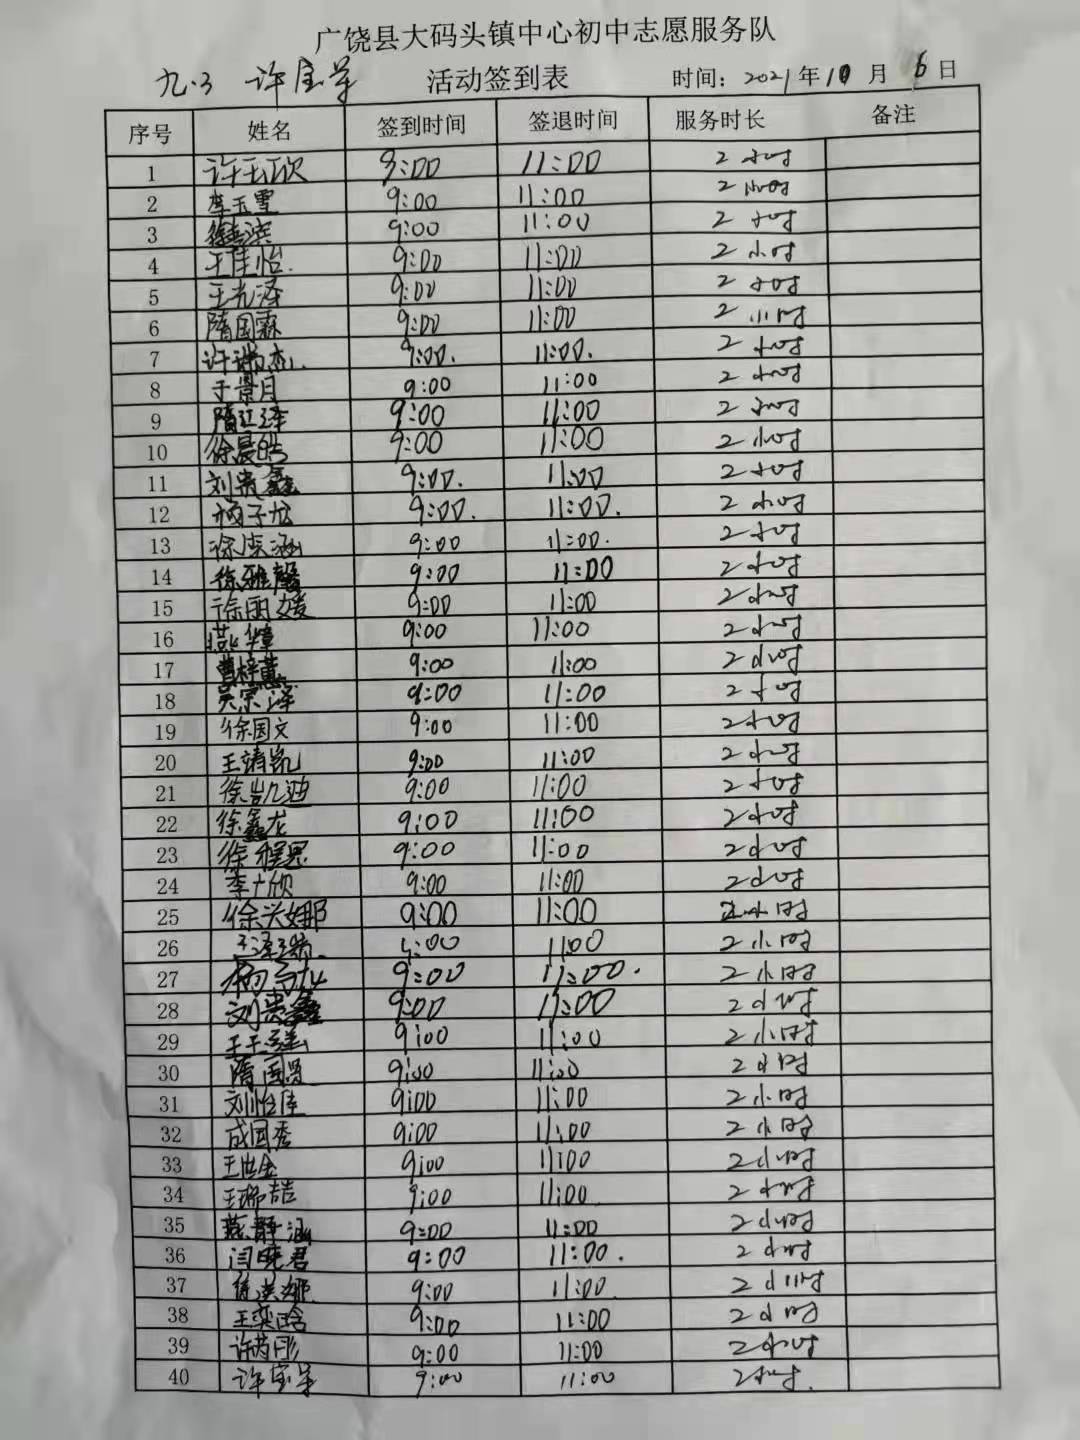 广饶县大码头镇中心初中志愿服务队
九.3 许宝 活动签到表 时间：2021年10月6日
序号 姓名 签到时间 签退时间 服务时长 备注
1 许玉欣 9:00 11:00 2小时
2 李玉雪 9:00 11:00 2小时
3 徐 滨 9:00 11:00 2小时
4 王佳怡. 9:00 11:00 2小时
5 王光泽 9:00 11:00 2小时
6 隋国霖 9:00 11:00 2小时
7 许瑞杰. 9:00. 11:00. 2小时
8 于景月 9:00 11:00 2小时
9 隋江泽 9:00 11:00 2小时
10 徐晨皓 9:00 11:00 2小时
11 刘贵鑫 9:00. 11:00 2小时
12 杨子龙 9:00. 11:00. 2小时
13 徐 涵 9:00 11:00. 2小时
14 徐雅馨 9:00 11:00 2小时
15 徐雨媛 9:00 11:00 2小时
16 9:00 11:00 2小时
17 曹梓蕙 9:00 11:00 2小时
18 吴宗泽 9:00 11:00 2小时
19 徐国文 9:00 11:00 2小时
20 王靖凯 9:00 11:00 2小时
21 徐凯迪 9:00 11:00 2小时
22 徐鑫龙 9:00 11:00 2小时
23 徐程恩 9:00 11:00 2小时
24 李 欣 9:00 11:00 2小时
25 徐兴娜 9:00 11:00 2小时
26 王泽瑞. 9:00 11:00 2小时
27 杨子龙 9:00 11:00. 2小时
28 刘贵鑫 9:00 11:00 2小时
29 王 9:00 11:00 2小时
30 隋国 9:00 11:00 2小时
31 刘怡佳 9:00 11:00 2小时
32 成国秀 9:00 11:00 2小时
33 王 金 9:00 11:00 2小时
34 王 喆 9:00 11:00. 2小时
35 燕静涵 9:00 11:00 2小时
36 闫晓君 9:00 11:00. 2小时
37 徐 娜. 9:00 11:00. 2小时
38 王奕晗 9:00 11:00 2小时
39 许芮彤 9:00 11:00 2小时
40 许宝 9:00 11:00 2小时.